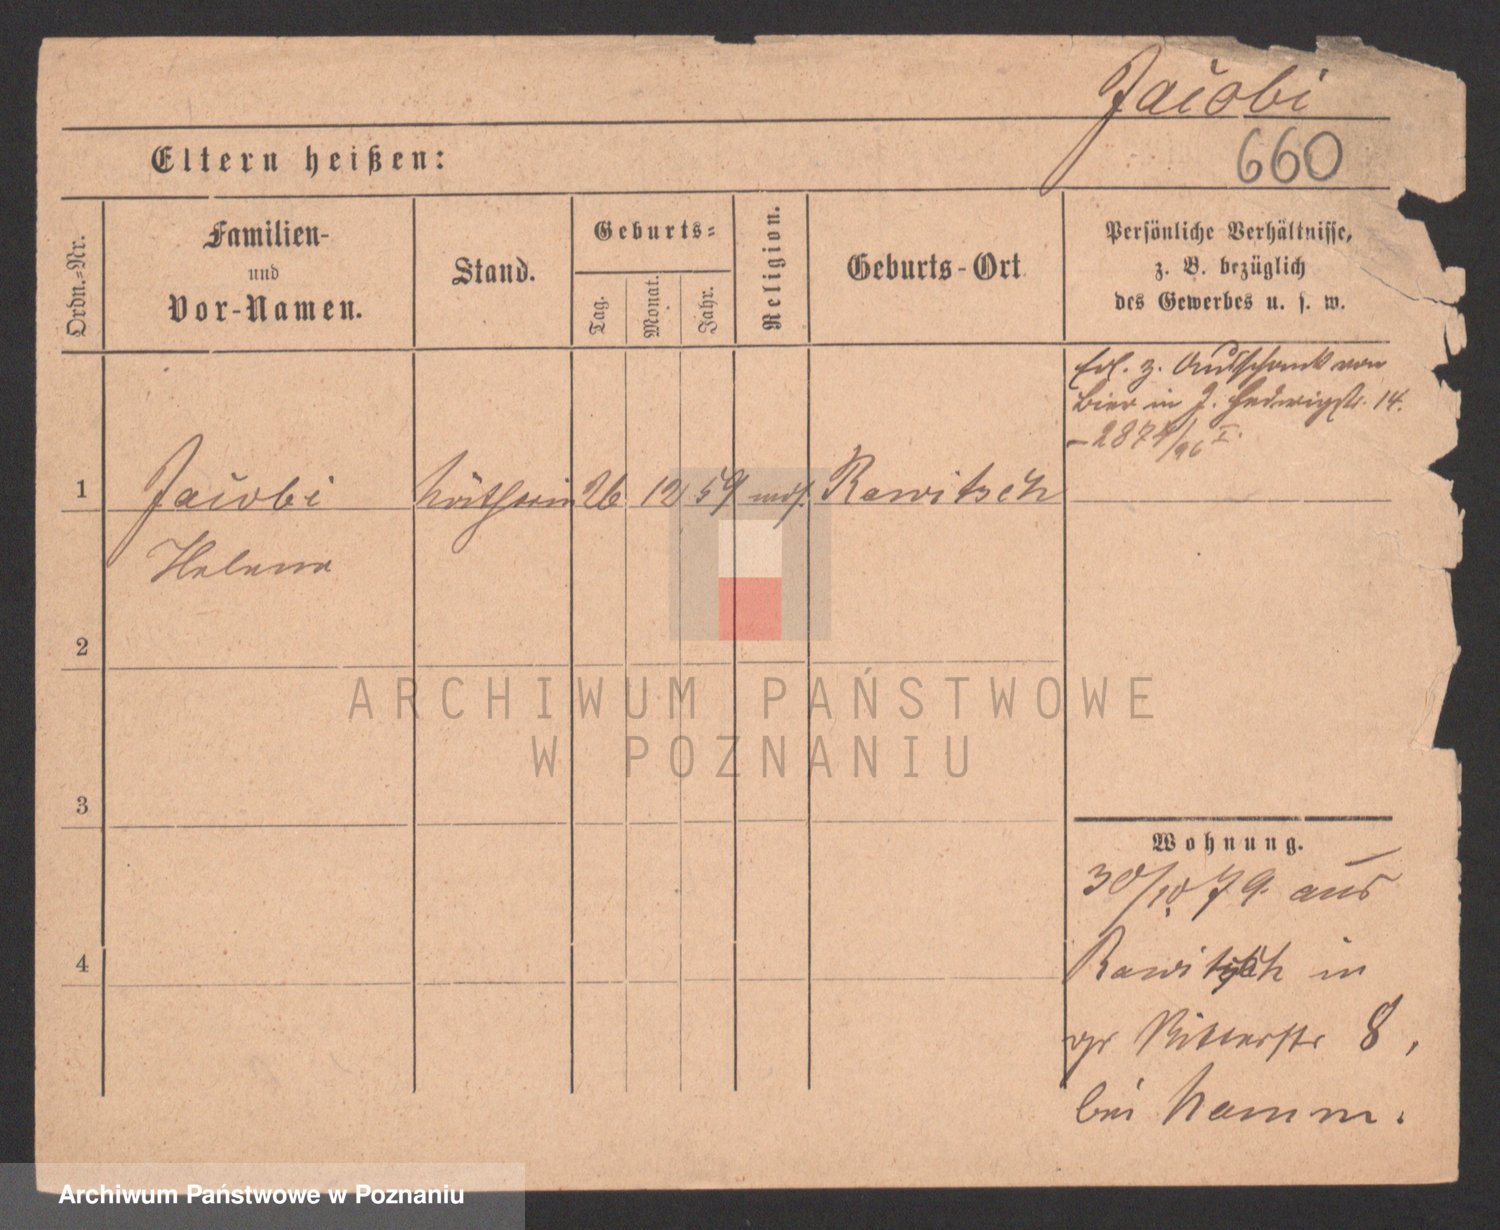 Jacobi
660
Eltern heißen:
Ordn.-Nr.
Familien-
und
Vor-Namen.
Stand.
Geburts-
Tag.
Monat.
Jahr.
Religion.
Geburts-Ort
Persönliche Verhältnisse,
z. B. bezüglich
des Gewerbes u. s. w.
Erl. z. Ausschank von
Bier in J. Hedwigstr. 14.
1
Jacobi
Nätherin
26
12
59
mos.
Rawitsch
Helene
2
ARCHIWUM PAŃSTWOWE
W POZNANIU
3
Wohnung.
30/10 79. aus
4
Rawitsch in
gr Ritterstr 8,
bei
Archiwum Państwowe w Poznaniu